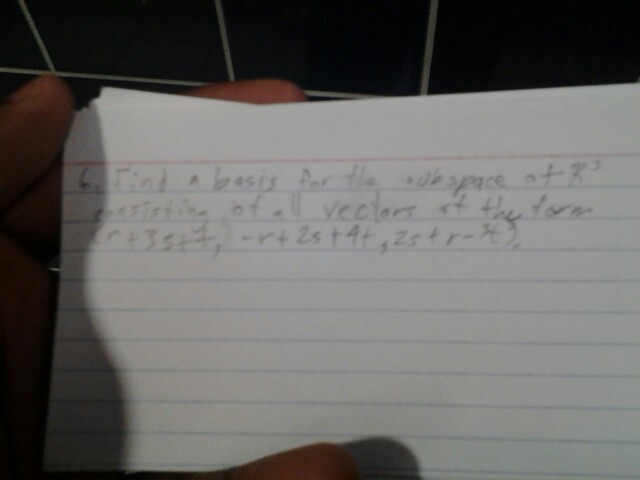 6. Find a basis for the subspace of R³
consisting of all vectors of the form
(r+3s+t, -r+2s+4t, 2s+r-3t).